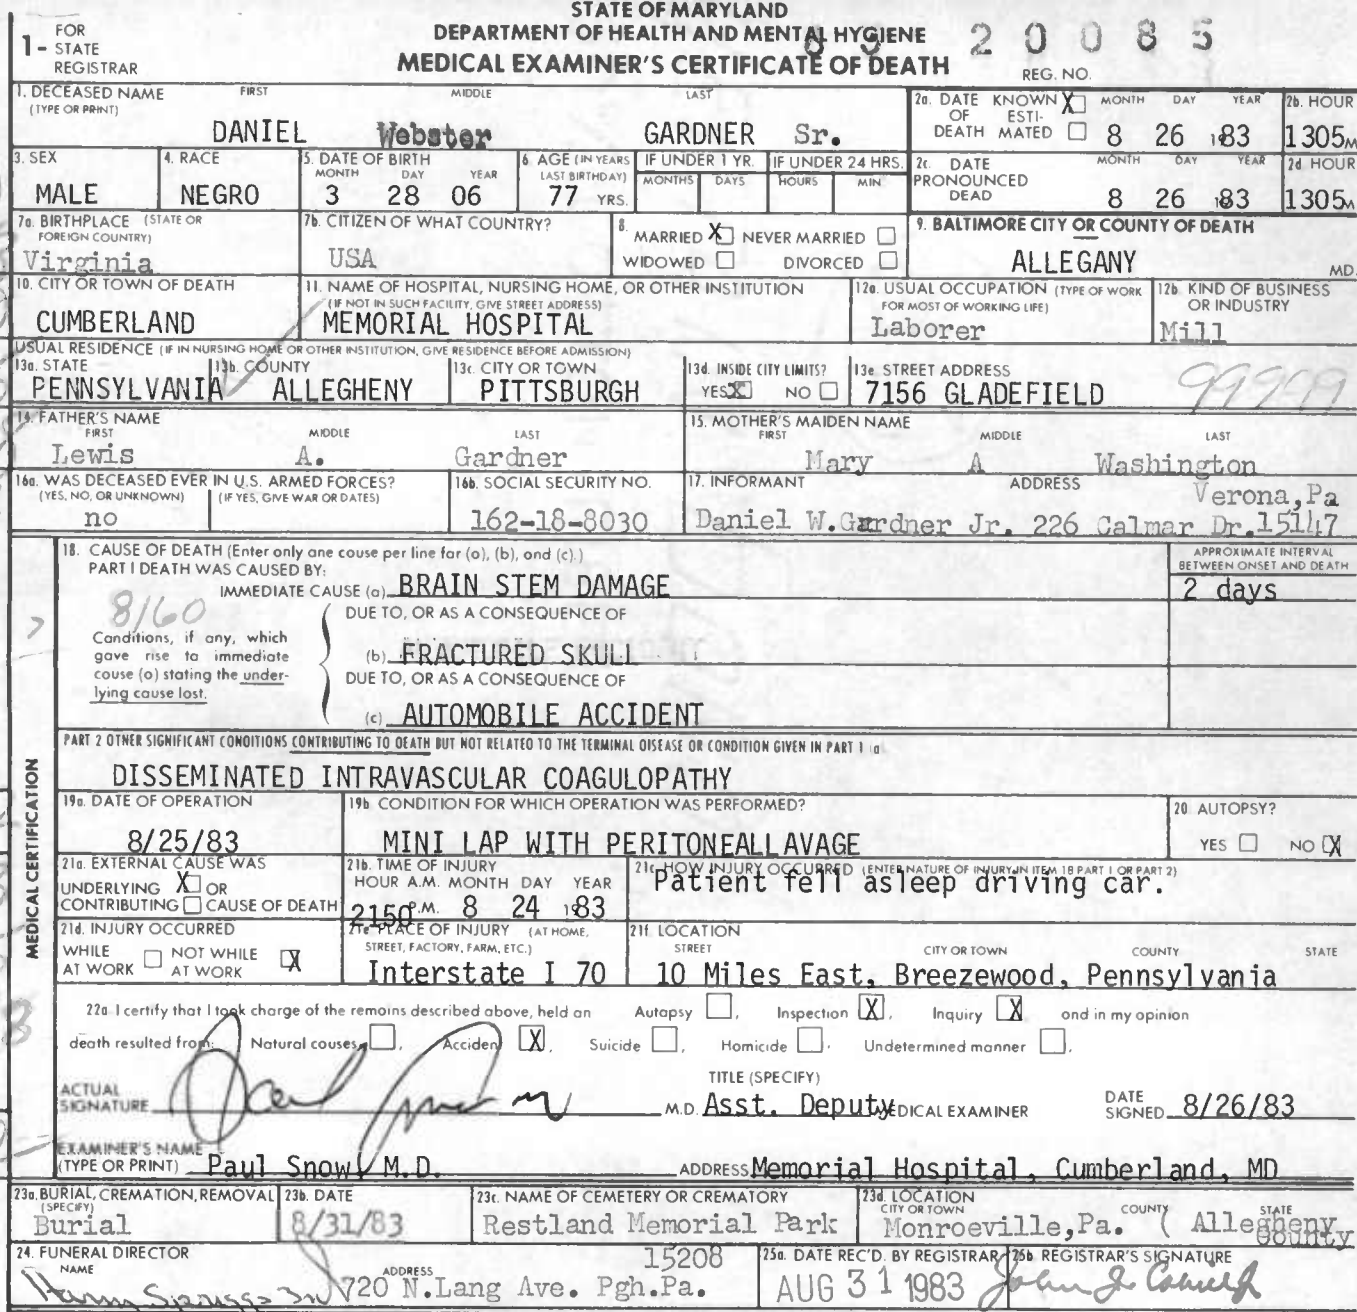 STATE OF MARYLAND
DEPARTMENT OF HEALTH AND MENTAL HYGIENE
MEDICAL EXAMINER'S CERTIFICATE OF DEATH
1- FOR STATE REGISTRAR
83 20085
REG. NO.
1. DECEASED NAME (TYPE OR PRINT) FIRST MIDDLE LAST
DANIEL Webster GARDNER Sr.
2a. DATE OF DEATH KNOWN X ESTIMATED MONTH DAY YEAR
8 26 1983
2b. HOUR
1305 M
3. SEX
MALE
4. RACE
NEGRO
5. DATE OF BIRTH MONTH DAY YEAR
3 28 06
6. AGE (IN YEARS LAST BIRTHDAY)
77 YRS.
IF UNDER 1 YR. MONTHS DAYS
IF UNDER 24 HRS. HOURS MIN
2c. DATE PRONOUNCED DEAD MONTH DAY YEAR
8 26 1983
2d. HOUR
1305 M
7a. BIRTHPLACE (STATE OR FOREIGN COUNTRY)
Virginia
7b. CITIZEN OF WHAT COUNTRY?
USA
8. MARRIED X NEVER MARRIED
WIDOWED DIVORCED
9. BALTIMORE CITY OR COUNTY OF DEATH
ALLEGANY MD.
10. CITY OR TOWN OF DEATH
CUMBERLAND
11. NAME OF HOSPITAL, NURSING HOME, OR OTHER INSTITUTION
(IF NOT IN SUCH FACILITY, GIVE STREET ADDRESS)
MEMORIAL HOSPITAL
12a. USUAL OCCUPATION (TYPE OF WORK FOR MOST OF WORKING LIFE)
Laborer
12b. KIND OF BUSINESS OR INDUSTRY
Mill
USUAL RESIDENCE (IF IN NURSING HOME OR OTHER INSTITUTION, GIVE RESIDENCE BEFORE ADMISSION)
13a. STATE
PENNSYLVANIA
13b. COUNTY
ALLEGHENY
13c. CITY OR TOWN
PITTSBURGH
13d. INSIDE CITY LIMITS?
YES X NO
13e. STREET ADDRESS
7156 GLADEFIELD
99999
14. FATHER'S NAME FIRST MIDDLE LAST
Lewis A. Gardner
15. MOTHER'S MAIDEN NAME FIRST MIDDLE LAST
Mary A Washington
16a. WAS DECEASED EVER IN U.S. ARMED FORCES?
(YES, NO, OR UNKNOWN) (IF YES, GIVE WAR OR DATES)
no
16b. SOCIAL SECURITY NO.
162-18-8030
17. INFORMANT ADDRESS
Verona,Pa
Daniel W.Gardner Jr. 226 Calmar Dr.15147
18. CAUSE OF DEATH (Enter only one cause per line for (a), (b), and (c).)
PART I DEATH WAS CAUSED BY:
APPROXIMATE INTERVAL BETWEEN ONSET AND DEATH
IMMEDIATE CAUSE (a) BRAIN STEM DAMAGE
2 days
8160
DUE TO, OR AS A CONSEQUENCE OF
Conditions, if any, which gave rise to immediate cause (a) stating the underlying cause last.
(b) FRACTURED SKULL
DUE TO, OR AS A CONSEQUENCE OF
(c) AUTOMOBILE ACCIDENT
PART 2 OTHER SIGNIFICANT CONDITIONS CONTRIBUTING TO DEATH BUT NOT RELATED TO THE TERMINAL DISEASE OR CONDITION GIVEN IN PART 1 (a)
DISSEMINATED INTRAVASCULAR COAGULOPATHY
MEDICAL CERTIFICATION
19a. DATE OF OPERATION
8/25/83
19b. CONDITION FOR WHICH OPERATION WAS PERFORMED?
MINI LAP WITH PERITONEALLAVAGE
20. AUTOPSY?
YES NO X
21a. EXTERNAL CAUSE WAS
UNDERLYING X OR
CONTRIBUTING CAUSE OF DEATH
21b. TIME OF INJURY
HOUR A.M. MONTH DAY YEAR
2150 P.M. 8 24 1983
21c. HOW INJURY OCCURRED (ENTER NATURE OF INJURY IN ITEM 18 PART 1 OR PART 2)
Patient fell asleep driving car.
21d. INJURY OCCURRED
WHILE AT WORK NOT WHILE AT WORK X
21e. PLACE OF INJURY (AT HOME, STREET, FACTORY, FARM, ETC.)
Interstate I 70
21f. LOCATION
STREET CITY OR TOWN COUNTY STATE
10 Miles East, Breezewood, Pennsylvania
22a. I certify that I took charge of the remains described above, held an Autopsy , Inspection X , Inquiry X and in my opinion
death resulted from: Natural causes , Accident X , Suicide , Homicide . Undetermined manner .
TITLE (SPECIFY)
ACTUAL SIGNATURE M.D. Asst. Deputy MEDICAL EXAMINER DATE SIGNED 8/26/83
EXAMINER'S NAME (TYPE OR PRINT) Paul Snow M.D. ADDRESS Memorial Hospital, Cumberland, MD
23a. BURIAL, CREMATION, REMOVAL (SPECIFY)
Burial
23b. DATE
8/31/83
23c. NAME OF CEMETERY OR CREMATORY
Restland Memorial Park
23d. LOCATION CITY OR TOWN COUNTY STATE
Monroeville,Pa. ( Allegheny County
24. FUNERAL DIRECTOR
NAME ADDRESS
15208
720 N.Lang Ave. Pgh.Pa.
25a. DATE REC'D. BY REGISTRAR
AUG 31 1983
25b. REGISTRAR'S SIGNATURE